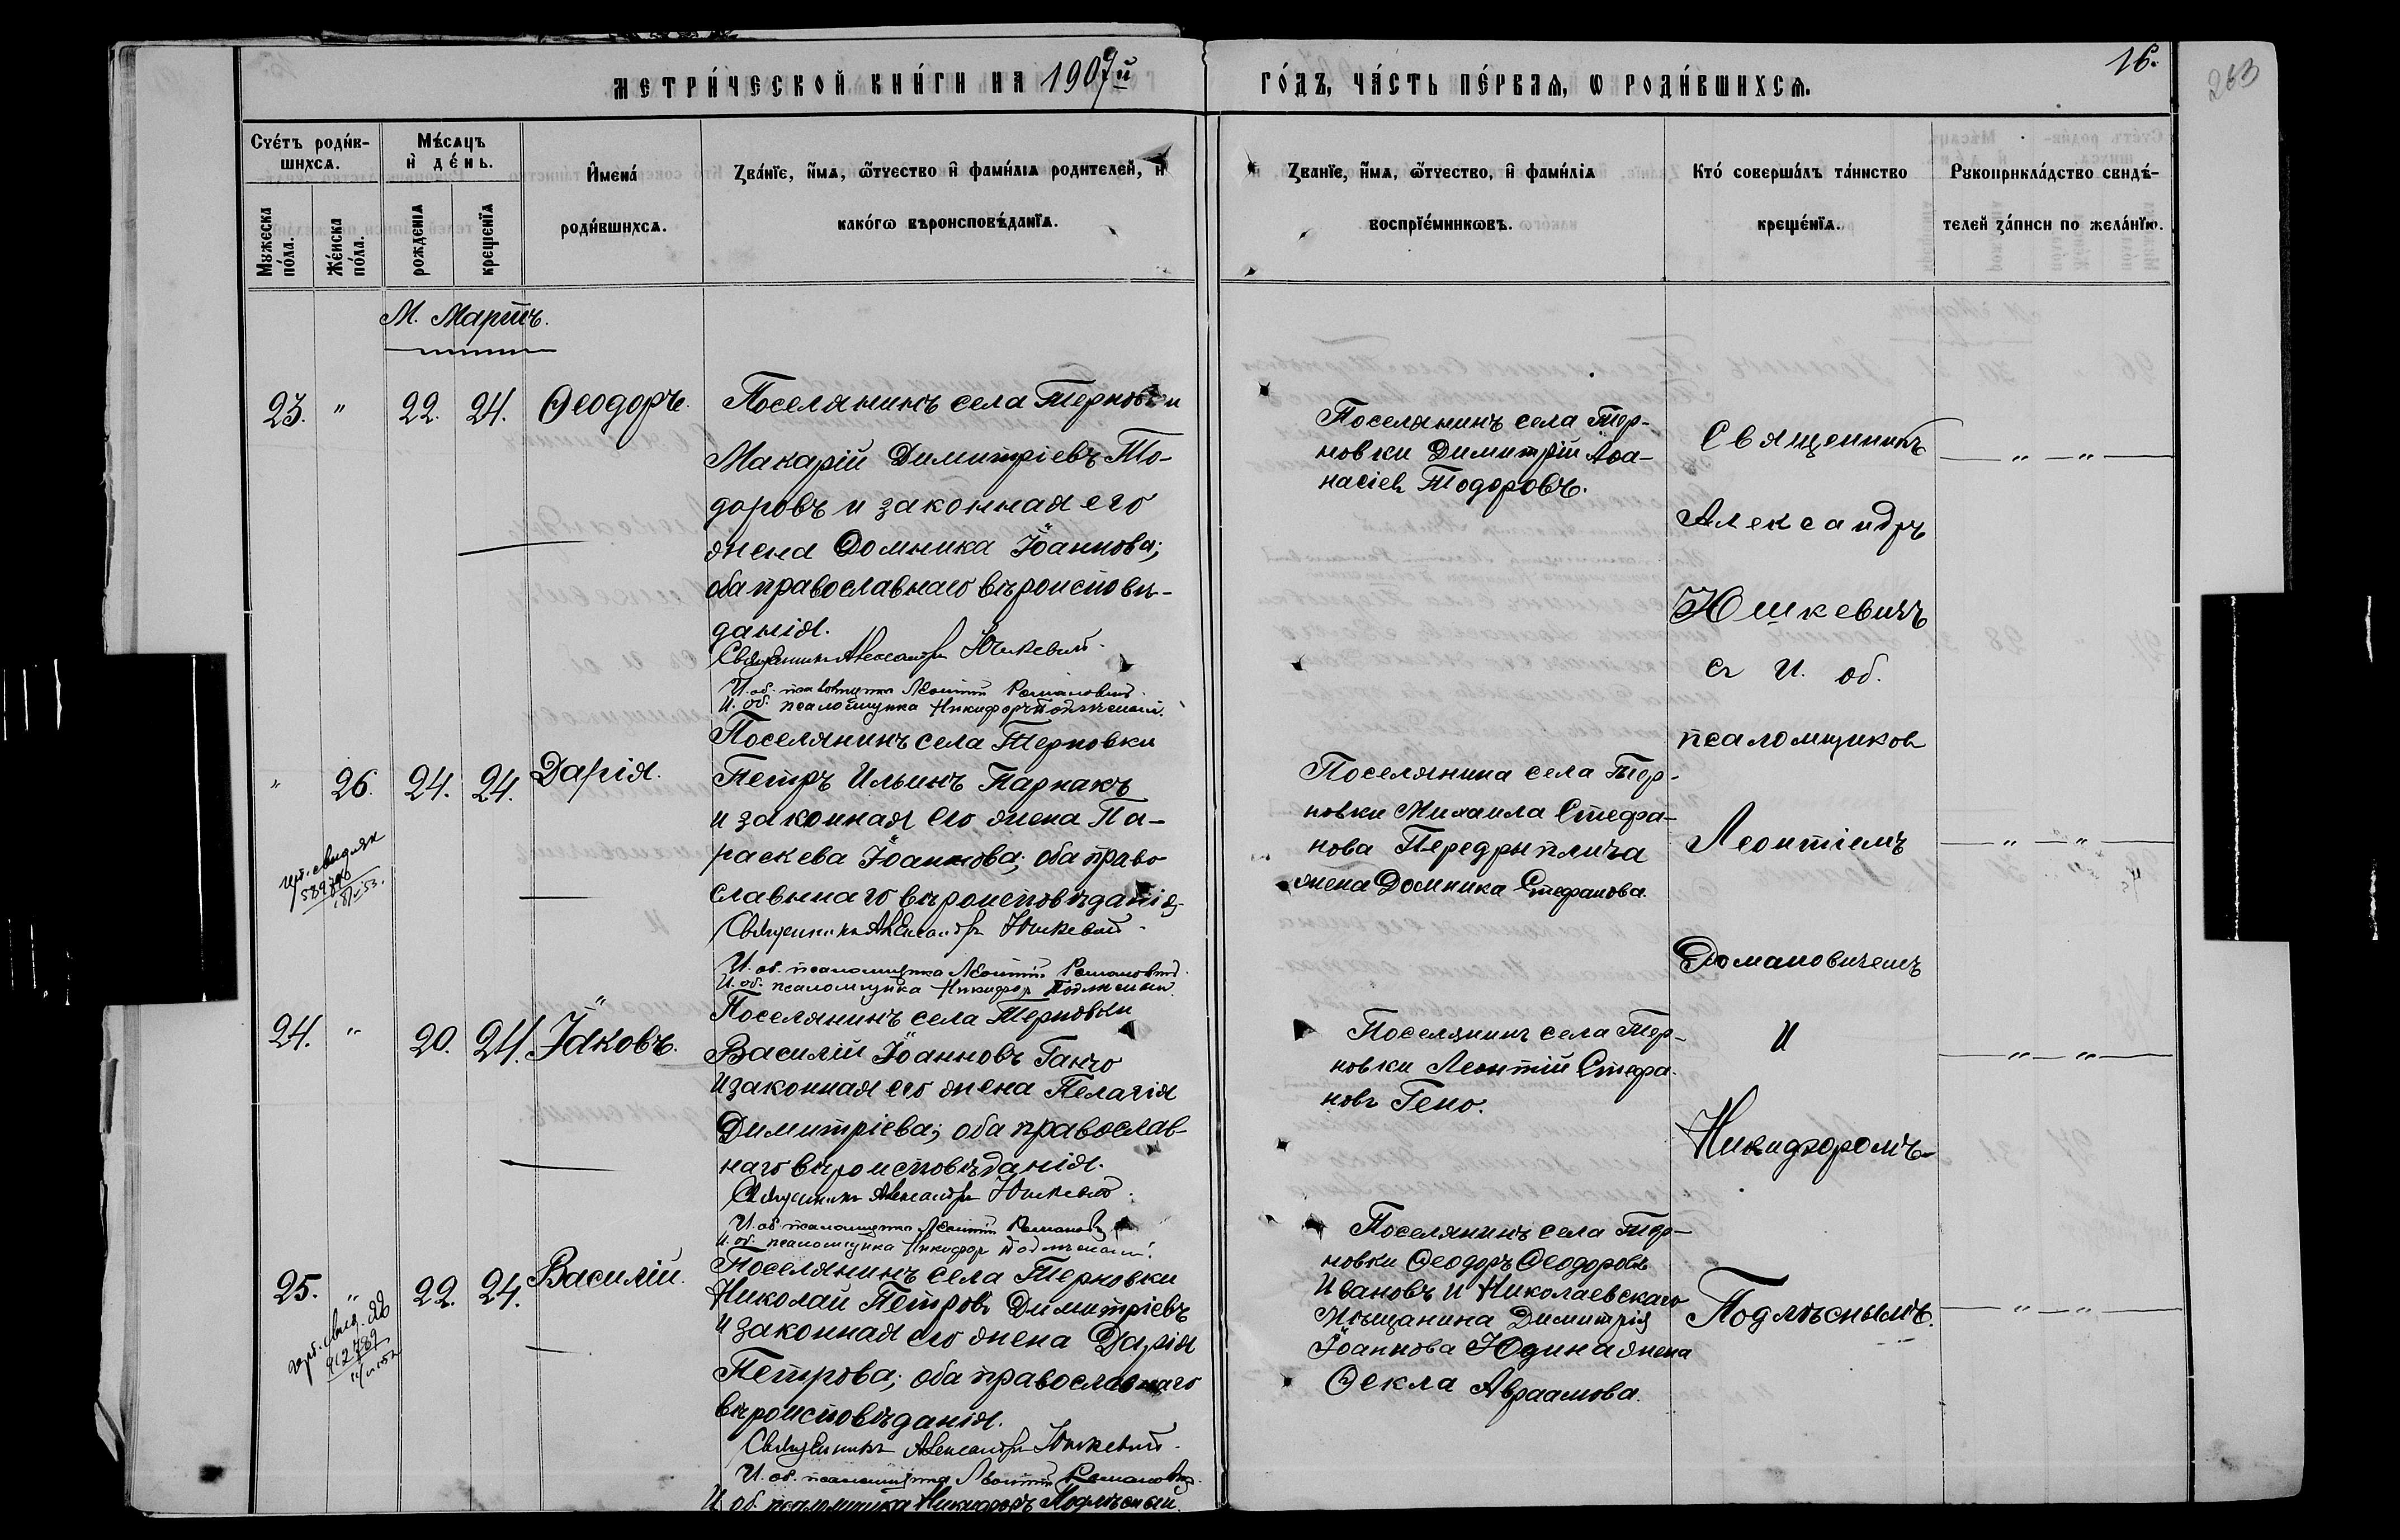 МЕТРИ́ЧЕСКОЙ КНИ́ГИ НА 1907й
ГО́ДЪ, ЧА́СТЬ ПЕ́РВАѦ, Ѡ РОДИ́ВШИХСѦ.
16.
263
Сче́тъ роди́в-
шихсѧ.
Мꙋжеска
по́ла.
Же́нска
по́ла.
Мѣ́сѧцъ
и҆ де́нь.
рожденїѧ
крещенїѧ
И҆мена́
роди́вшихсѧ.
Зва́нїе, и҆́мѧ, ѻ҆́тчество и҆ фами́лїѧ родителей, и҆
како́гѡ вѣроисповѣ́данїѧ.
Зва́нїе, и҆́мѧ, ѻ҆́тчество, и҆ фами́лїѧ
воспрїе́мникѡвъ.
Кто́ соверша́лъ та́инство
креще́нїѧ.
Рꙋкоприкла́дство свидѣ́-
телей за́писи по жела́нїю.
М. Мартъ.
23. " 22. 24. Ѳеодоръ.
Поселянинъ села Терновки
Макарій Димитріевъ То-
доровъ и законная его
жена Домника Іоаннова;
оба православнаго вѣроисповѣ-
данія.
Священникъ Александръ Юшкевичъ.
И. об. псаломщика Леонтій Романовичъ.
И. об. псаломщика Никифоръ Подлѣсный.
Поселянинъ села Тер-
новки Димитрій Аѳа-
насіевъ Тодоровъ.
Священникъ
Александръ
Юшкевичъ
съ И. об.
псаломщиковъ
Леонтіемъ
Романовичемъ
и
Никифоромъ
Подлѣснымъ.
— " — " —
" 26. 24. 24. Дарія.
589
53.
Поселянинъ села Терновки
Петръ Ильинъ Парнакъ
и законная его жена Па-
раскева Іоаннова; оба право
славнаго вѣроисповѣданія.
Священникъ Александръ Юшкевичъ.
И. об. псаломщика Леонтій Романовичъ.
И. об. псаломщика Никифор Подлѣсный.
Поселянина села Тер-
новки Михаила Стефа-
нова Передрыплича
жена Домника Стефанова.
— " — " —
24. " 20. 24. Іаковъ.
Поселянинъ села Терновки
Василій Іоанновъ Ганчо
и законная его жена Пелагія
Димитріева; оба православ-
наго вѣроисповѣданія.
Священникъ Александръ Юшкевичъ.
И. об. псаломщика Леонтій Романовичъ
И. об. псаломщика Никифор Подлѣсный.
Поселянинъ села Тер-
новки Леонтій Стефа-
новъ Гено.
— " — " —
25. " 22. 24. Василій.
912789
Поселянинъ села Терновки
Николай Петровъ Димитріевъ
и законная его жена Дарія
Петрова; оба православнаго
вѣроисповѣданія.
Священникъ Александръ Юшкевичъ.
И. об. псаломщика Леонтій Романовичъ.
И. об. псаломщика Никифоръ Подлѣсный.
Поселянинъ села Тер-
новки Ѳеодоръ Ѳеодоровъ
Ивановъ и Николаевскаго
мѣщанина Димитрія
Іоаннова Юдина жена
Ѳекла Авраамова.
— " — " —